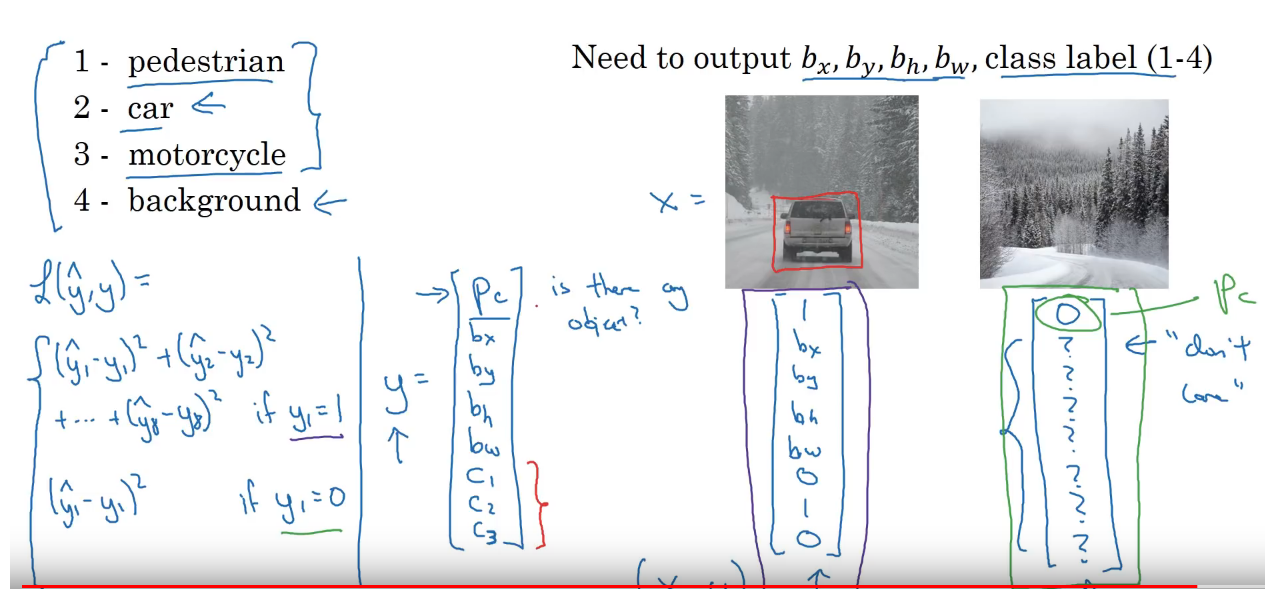 1 - pedestrian
2 - car ←
3 - motorcycle
4 - background ←
Need to output bx, by, bh, bw, class label (1-4)
x =
ℒ(ŷ,y) =
(ŷ1-y1)² + (ŷ2-y2)²
+ ... + (ŷ8-y8)² if y1=1
(ŷ1-y1)² if y1=0
y =
→ Pc
bx
by
bh
bw
C1
C2
C3
is there any
object?
1
bx
by
bh
bw
0
1
0
0
?
?
?
?
?
?
?
Pc
← "don't
care"
(x